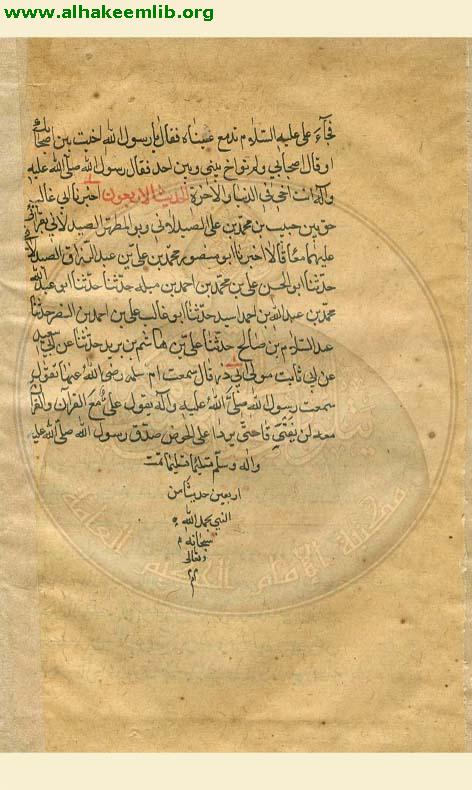 www.alhakeemlib.org
فجآء علي عليه السّلام تدمع عيناه فقال يا رسول الله اخيت بين صحابتك
او قال اصحابي ولم تواخ بيني وبين احد فقال رسول الله صلّى الله عليه
وآله انت اخي في الدنيا والاخرة الحديث الاربعون اخبرنا ابي غالب
بن حبيب بن محمد بن علي الصيدلاني وبو المطهر الصيدلاني بقرائتي
عليهما معًا قالا اخبرنا ابو منصور محمد بن علي بن عبد الرزاق الصيدلا
حدثنا ابو الحسن علي بن محمد بن احمد بن ميله حدثنا حدّثنا ابو عبد الله
محمد بن عبد الله بن احمد اسيد حدثنا ابو غالب علي بن احمد بن النضر حدثنا
عبد السّلام بن صالح حدّثنا علي بن هاشم بن بريد حدثنا عن ابي سعيد
عن ابي ثابت مولى ابي ذر قال سمعت ام سلمه رضي الله عنها تقول
سمعت رسول الله صلّى الله عليه وآله يقول علي مع القرآن والقرآ
معه لن يفترقا حتّى يردا على الحوض صدق رسول الله صلّى الله عليه
واله وسلّم تسليمًا تسليما تمت
اربعين حديثا من
النبي بحمد الله
سبحانه
وتعالى
تم
مكتبة الإمام الحكيم العامة